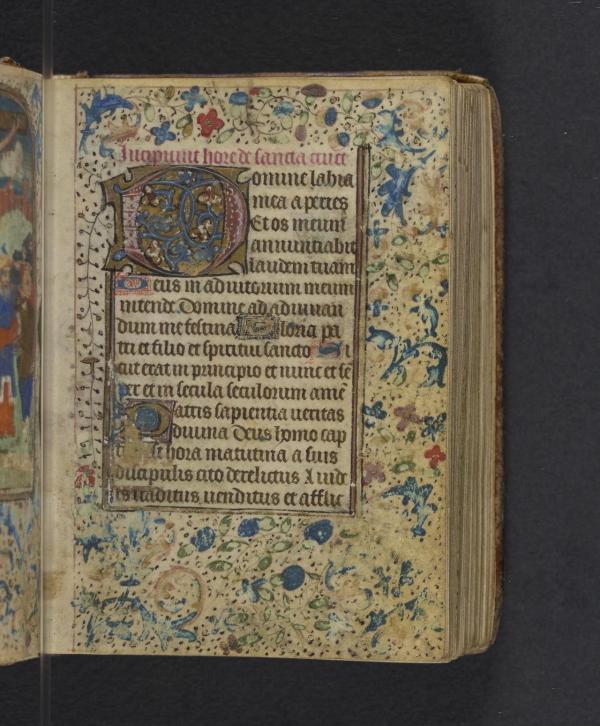 Incipiunt hore de sancta cruce
Domine labia
mea aperies
Et os meum
annunciabit
laudem tuam
Deus in adiutorium meum
intende Domine ad adiuuan
dum me festina Gloria pa
tri et filio et spiritui sancto Si
cut erat in principio et nunc et se
per et in secula seculorum ame
Patris sapientia ueritas
diuina Deus homo cap
hora matutina a suis
discipulis cito derelictus A iude
is traditus uenditus et afflic